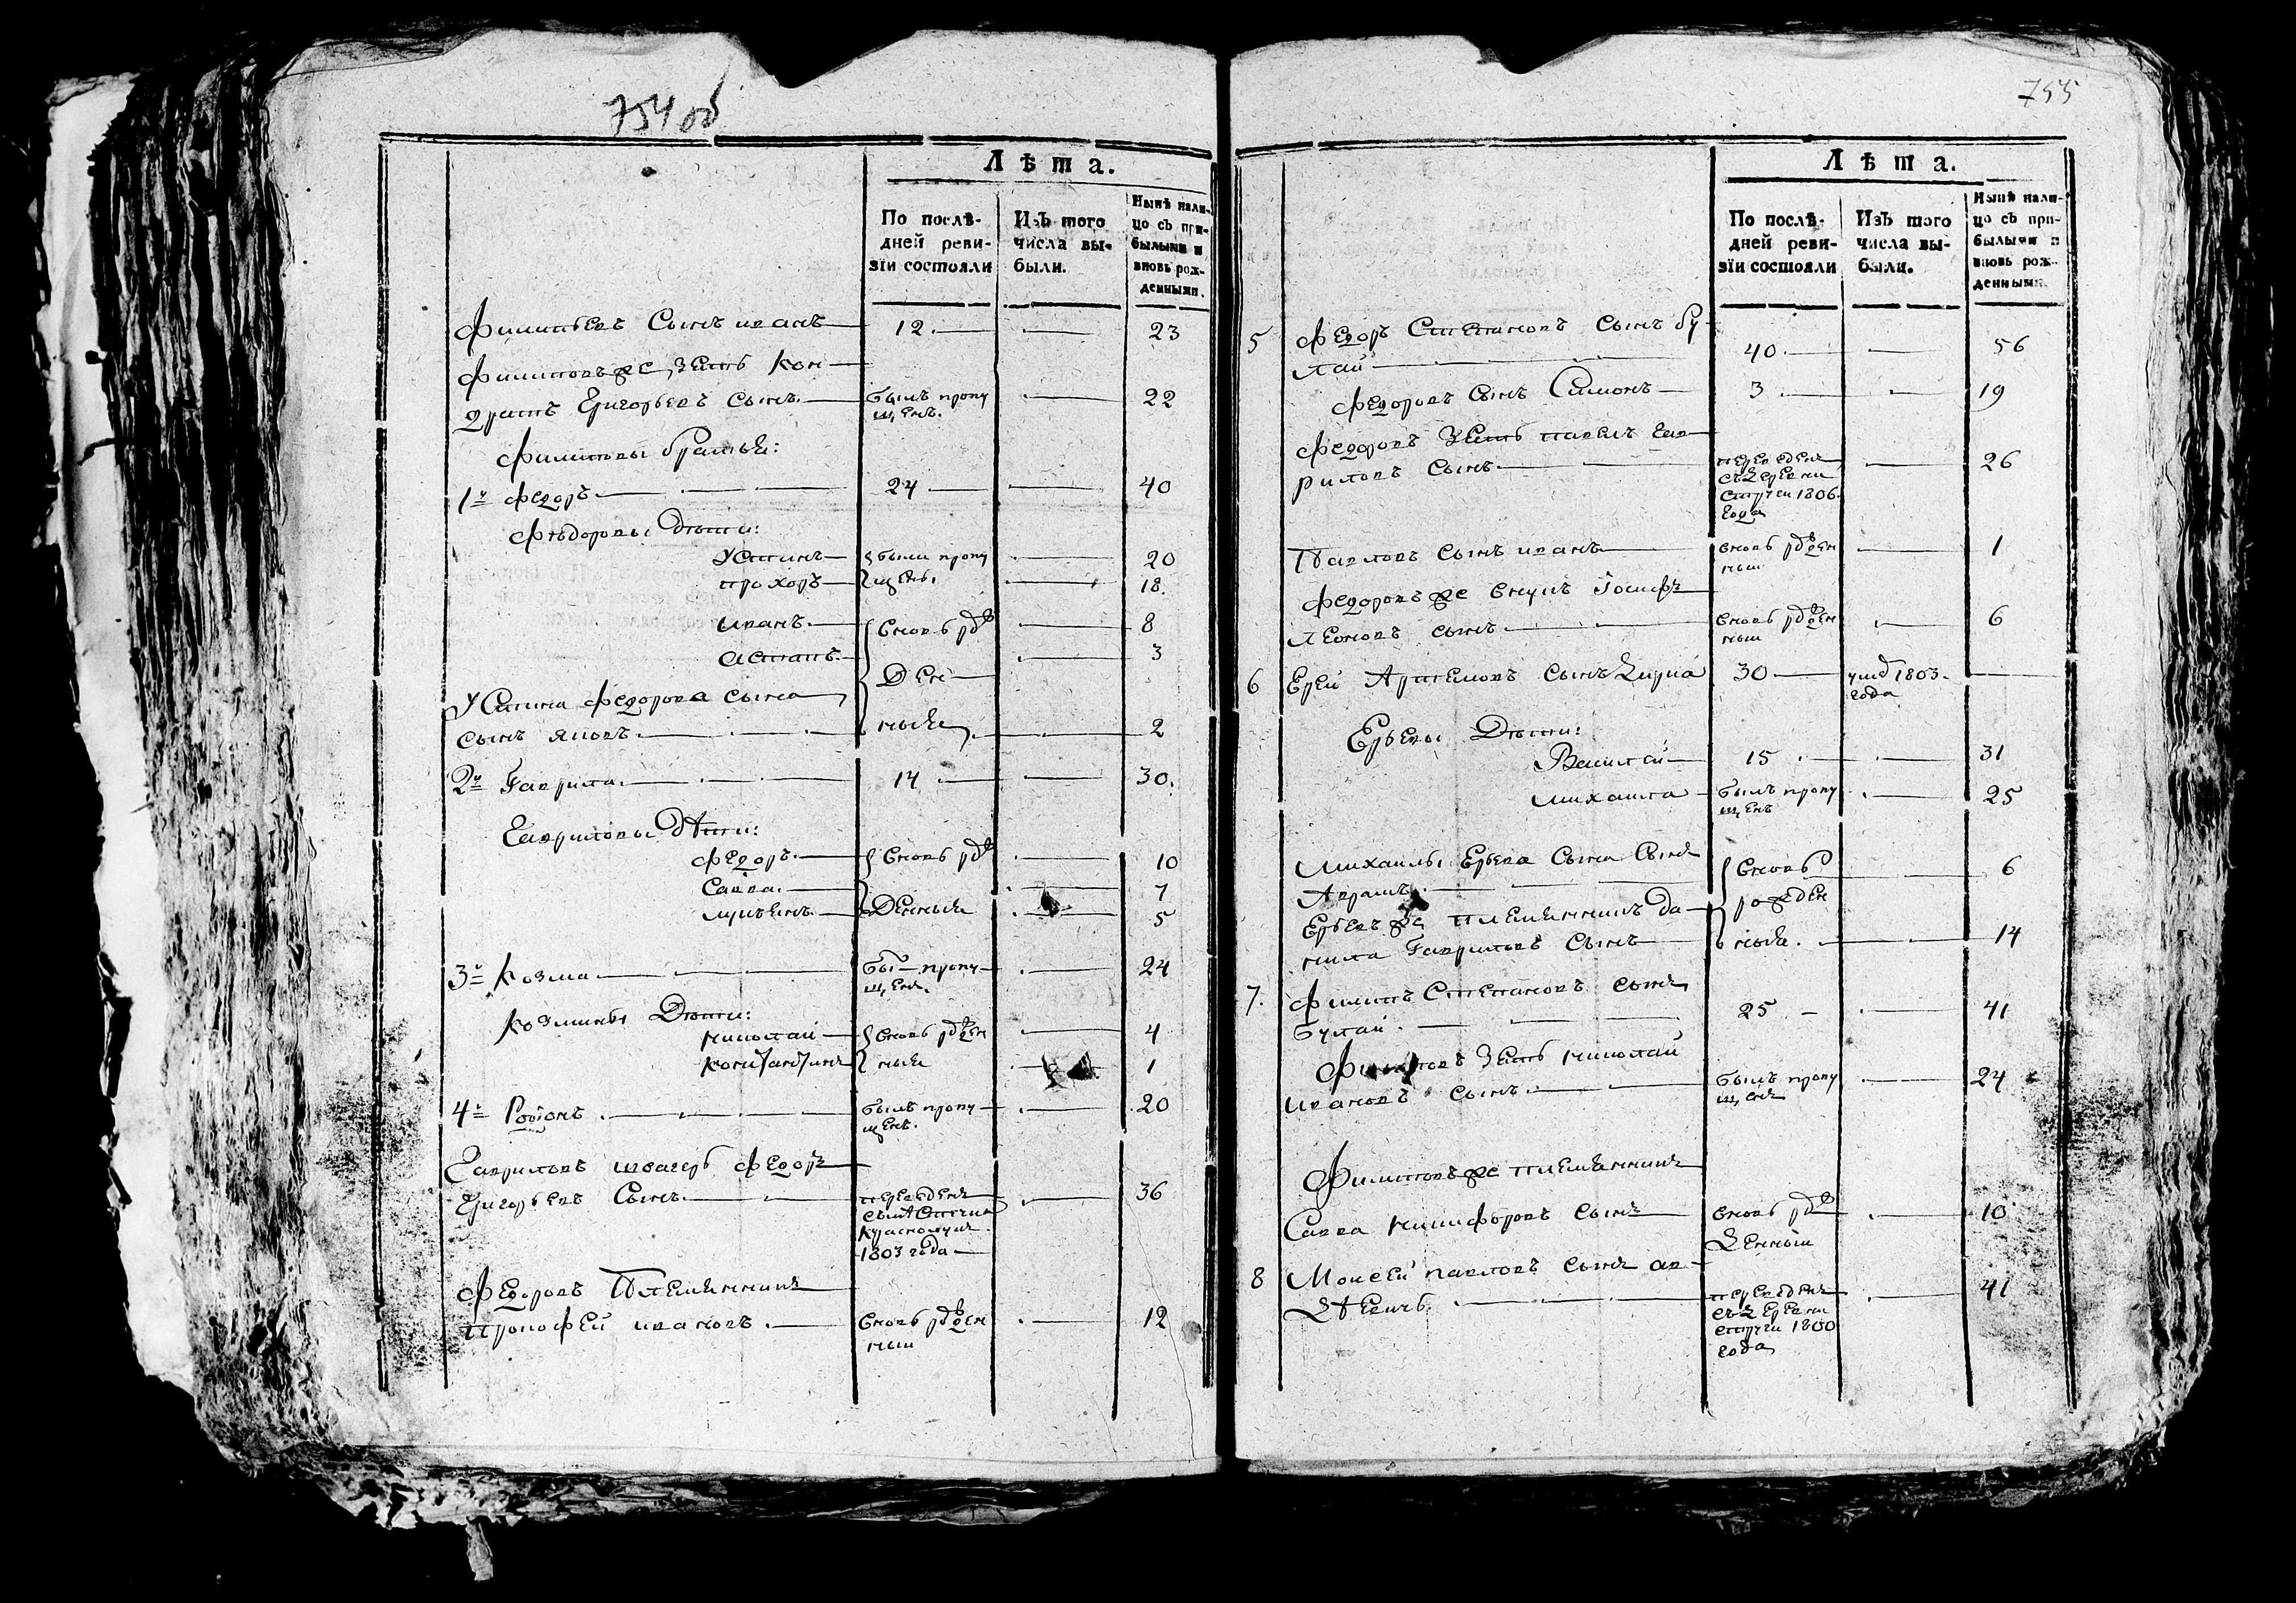 754 об
Лѣта.
По послѣ-
дней реви-
зїи состояли
Изъ того
числа вы-
были.
Нынѣ нали-
цо съ при-
былыми и
вновь рож-
денными.
Филипьевъ Сынъ иванъ 12. 23
Филиповъ же Зять Кон
дратъ Григорьевъ сынъ. былъ пропу 22
щенъ.
Филиповы братья:
1й Федоръ 24 40
Фѣдоровы Дѣти:
Устинъ были пропу 20
прохоръ щены. 18.
иванъ вновь рож 8
астапъ 3
ден
Устина Федорова сына
сынъ яковъ. ныя 2
2й Гаврила. 14 30.
Гавриловы дѣти:
Федоръ. вновь рож 10
Савва. 7
лукьянъ. Денныя 5
3й Козма был пропу 24
щенъ.
Козмины Дѣти:
николай вновь рожден 4
константинъ ныя 1
4й Родіонъ былъ пропу 20
щенъ.
Гавриловъ швагеръ Федоръ
Григорьевъ Сынъ. переведенъ 36
1803 года
Федоровъ Племянникъ
прокофей ивановъ. вновь рожден 12
ный
755
Лѣта.
По послѣ-
дней реви-
зїи состояли
Изъ того
числа вы-
были.
Нынѣ нали-
цо съ при-
былыми и
вновь рож-
денными.
5 Федоръ Степановъ сынъ бу
лай 40. 56
Федоровъ Сынъ Симонъ 3 19
Федоровъ Зять павелъ гав
риловъ сынъ переведенъ 26
съ деревни
стручеи 1806
года
Павловъ сынъ иванъ вновь рожден 1
ный
Федоровъ же внукъ Іосифъ
леоновъ сынъ вновь рожден 6
ный
6 Ерей Артемовъ сынъ 30 умер 1803.
года
Ерьевы Дѣти:
Василей 15 31
михайла былъ пропу 25
щенъ
Михайлы Ерьева Сына Сынъ вновь
Аврамъ. 6
Ерьевъ же племянникъ да рожден
нила Гавриловъ Сынъ ныя. 14
7. Филипъ Степановъ сынъ
булай. 25 41
Филиповъ Зять николай
ивановъ сынъ. былъ пропу 24
щенъ
Филиповъ же племянникъ
Савва никифоровъ сынъ вновь рож 10
денный
8 Моисей павловъ сынъ ав
дѣевичь. переведенъ 41
съ деревни
стручеи 1800
года